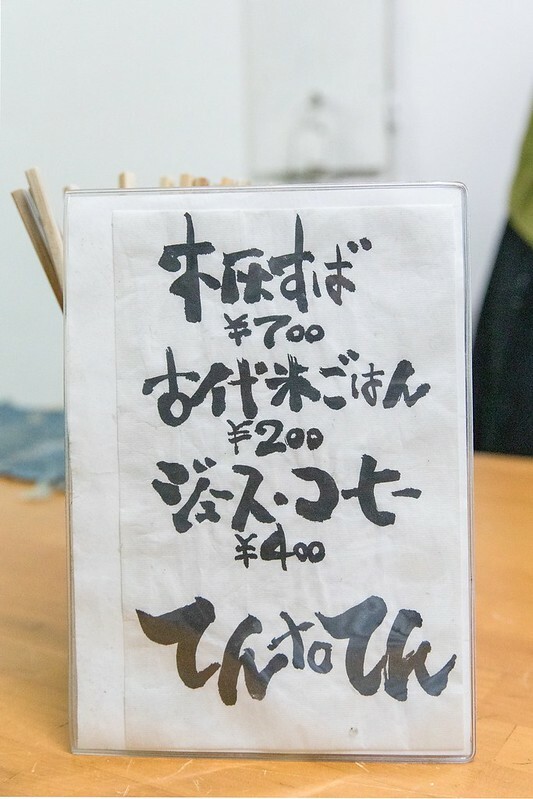 木灰すば
¥700
古代米ごはん
¥200
ジュース・コーヒー
¥400
てんtoてん